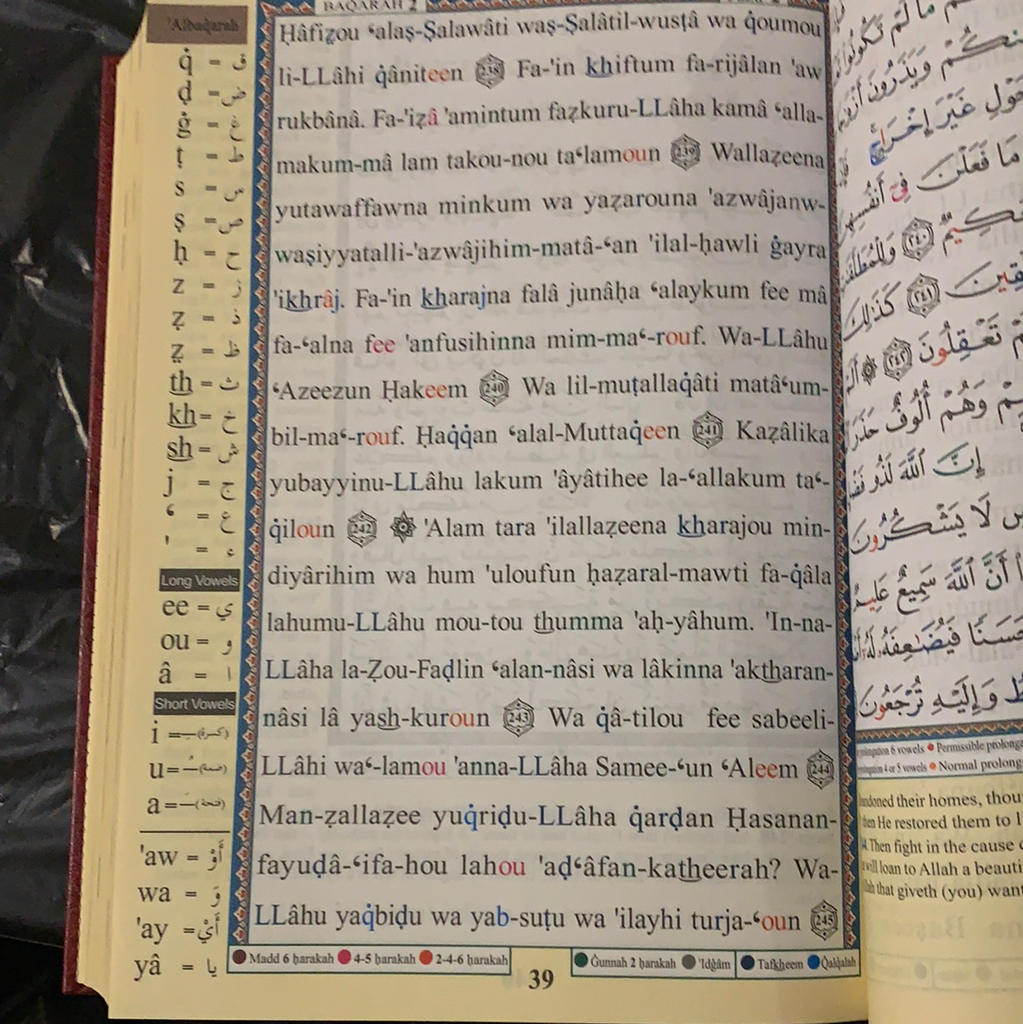 BAQARAH 2
'Albaqarah
q̇ = ق
ḍ = ض
ġ = غ
ṭ = ط
s = س
ṣ = ص
ḥ = ح
z = ز
ẓ = ذ
ẓ̤ = ظ
th = ث
kh = خ
sh = ش
j = ج
‘ = ع
' = ء
Long Vowels
ee = ي
ou = و
â = ا
Short Vowels
i = (كسرة)
u = (ضمة)
a = (فتحة)
'aw = أَوْ
wa = وَ
'ay = أَيْ
yâ = يا
Ḥâfiẓou ‘alaṣ-Ṣalawâti waṣ-Ṣalâtil-wusṭâ wa q̇oumou
li-LLâhi q̇âniteen 238 Fa-'in khiftum fa-rijâlan 'aw
rukbânâ. Fa-'iẓâ 'amintum faẓkuru-LLâha kamâ ‘alla-
makum-mâ lam takou-nou ta‘lamoun 239 Wallaẓeena
yutawaffawna minkum wa yaẓarouna 'azwâjanw-
waṣiyyatalli-'azwâjihim-matâ-‘an 'ilal-ḥawli ġayra
'ikhrâj. Fa-'in kharajna falâ junâḥa ‘alaykum fee mâ
fa-‘alna fee 'anfusihinna mim-ma‘-rouf. Wa-LLâhu
‘Azeezun Ḥakeem 240 Wa lil-muṭallaq̇âti matâ‘um-
bil-ma‘-rouf. Ḥaq̇q̇an ‘alal-Muttaq̇een 241 Kaẓâlika
yubayyinu-LLâhu lakum 'âyâtihee la-‘allakum ta‘-
q̇iloun 242 ۞ 'Alam tara 'ilallaẓeena kharajou min-
diyârihim wa hum 'uloufun ḥaẓaral-mawti fa-q̇âla
lahumu-LLâhu mou-tou thumma 'aḥ-yâhum. 'In-na-
LLâha la-Ẓou-Faḍlin ‘alan-nâsi wa lâkinna 'aktharan-
nâsi lâ yash-kuroun 243 Wa q̇â-tilou fee sabeeli-
LLâhi wa‘-lamou 'anna-LLâha Samee-‘un ‘Aleem 244
Man-ẓallaẓee yuq̇riḍu-LLâha q̇arḍan Ḥasanan-
fayuḍâ-‘ifa-hou lahou 'aḍ‘âfan-katheerah? Wa-
LLâhu yaq̇biḍu wa yab-suṭu wa 'ilayhi turja-‘oun 245
Madd 6 ḥarakah 4-5 ḥarakah 2-4-6 ḥarakah
39
Ġunnah 2 ḥarakah 'Idġâm Tafkheem Qalqalah
غَيْرَ إِخْرَاجٍ
مَا فَعَلْنَ فِي
تَعْقِلُونَ ٢٤٢ ۞
وَهُمْ أُلُوفٌ حَذَرَ
إِنَّ اللَّهَ لَذُو
لَا يَشْكُرُونَ
أَنَّ اللَّهَ سَمِيعٌ عَلِيمٌ
حَسَنًا فَيُضَاعِفَهُ لَهُ
وَإِلَيْهِ تُرْجَعُونَ
6 vowels Permissible prolong
4 or 5 vowels Normal prolong
their homes, thou
He restored them to l
Then fight in the cause
will loan to Allah a beauti
that giveth (you) want